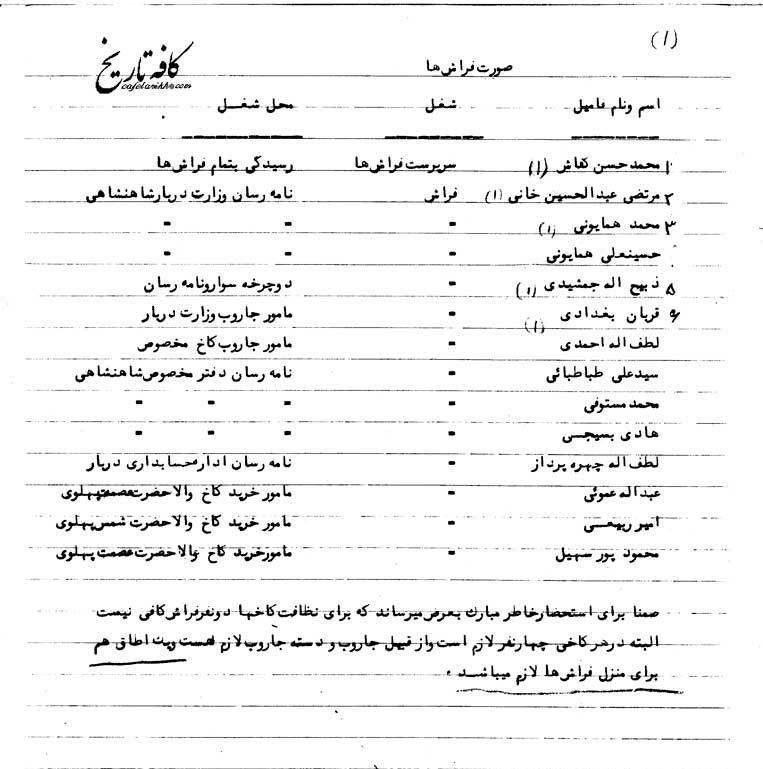 (۱)
کافه تاریخ
cafetarikh.com
صورت فراش‌ها
اسم ونام فامیل شغل محل شغل
۱ محمدحسن کفاش (۱) سرپرست فراش‌ها رسیدگی بتمام فراش‌ها
۲ مرتضی عبدالحسین خانی (۱) فراش نامه رسان وزارت دربارشاهنشاهی
۳ محمد همایونی (۱) - - -
حسینعلی همایونی - - -
۵ ذبیح اله جمشیدی (۱) - دوچرخه سوارونامه رسان
۶ قربان بغدادی (۱) - مامور جاروب وزارت دربار
لطف اله احمدی - مامور جاروب کاخ مخصوص
سیدعلی طباطبائی - نامه رسان دفتر مخصوص شاهنشاهی
محمد مستوفی - - - -
هادی بسیجسی - - - -
لطف اله چهره پرداز - نامه رسان اداره حسابداری دربار
عبداله عموئی - مامور خرید کاخ والاحضرت عصمت پهلوی
امیر ربیعسی - مامور خرید کاخ والاحضرت شمس پهلوی
محمود پور سهیل - مامورخرید کاخ والاحضرت عصمت پهلوی
ضمنا برای استحضارخاطر مبارك بعرض میرساند که برای نظافت کاخها دونفرفراش کافی نیست
البته درهرکاخی چهارنفر لازم است واز قبیل جاروب و دسته جاروب لازم هست ویك اطاق هم
برای منزل فراش‌ها لازم میباشد .